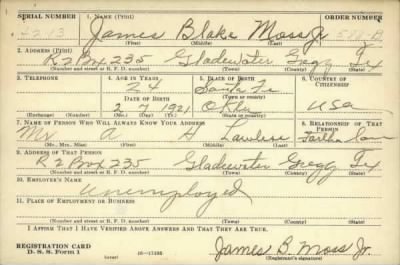 SERIAL NUMBER 1. NAME (Print) ORDER NUMBER
James Blake Moss Jr
(First) (Middle) (Last)
2. ADDRESS (Print)
R2 Box 235 Gladewater Gregg Tex
(Number and street or R. F. D. number) (Town) (County) (State)
3. TELEPHONE 4. AGE IN YEARS 5. PLACE OF BIRTH 6. COUNTRY OF CITIZENSHIP
24 Santa Fe
(Town or county)
DATE OF BIRTH
2 7 1921 Okla USA
(Exchange) (Number) (Mo.) (Day) (Yr.) (State or country)
7. NAME OF PERSON WHO WILL ALWAYS KNOW YOUR ADDRESS 8. RELATIONSHIP OF THAT PERSON
Mr A H Lawless
(Mr., Mrs., Miss) (First) (Middle) (Last)
9. ADDRESS OF THAT PERSON
R2 Box 235 Gladewater Gregg Tex
(Number and street or R. F. D. number) (Town) (County) (State)
10. EMPLOYER'S NAME
Unemployed
11. PLACE OF EMPLOYMENT OR BUSINESS
(Number and street or R. F. D. number) (Town) (County) (State)
I AFFIRM THAT I HAVE VERIFIED ABOVE ANSWERS AND THAT THEY ARE TRUE.
REGISTRATION CARD
D. S. S. Form 1 (over) James B. Moss Jr.
(Registrant's signature)